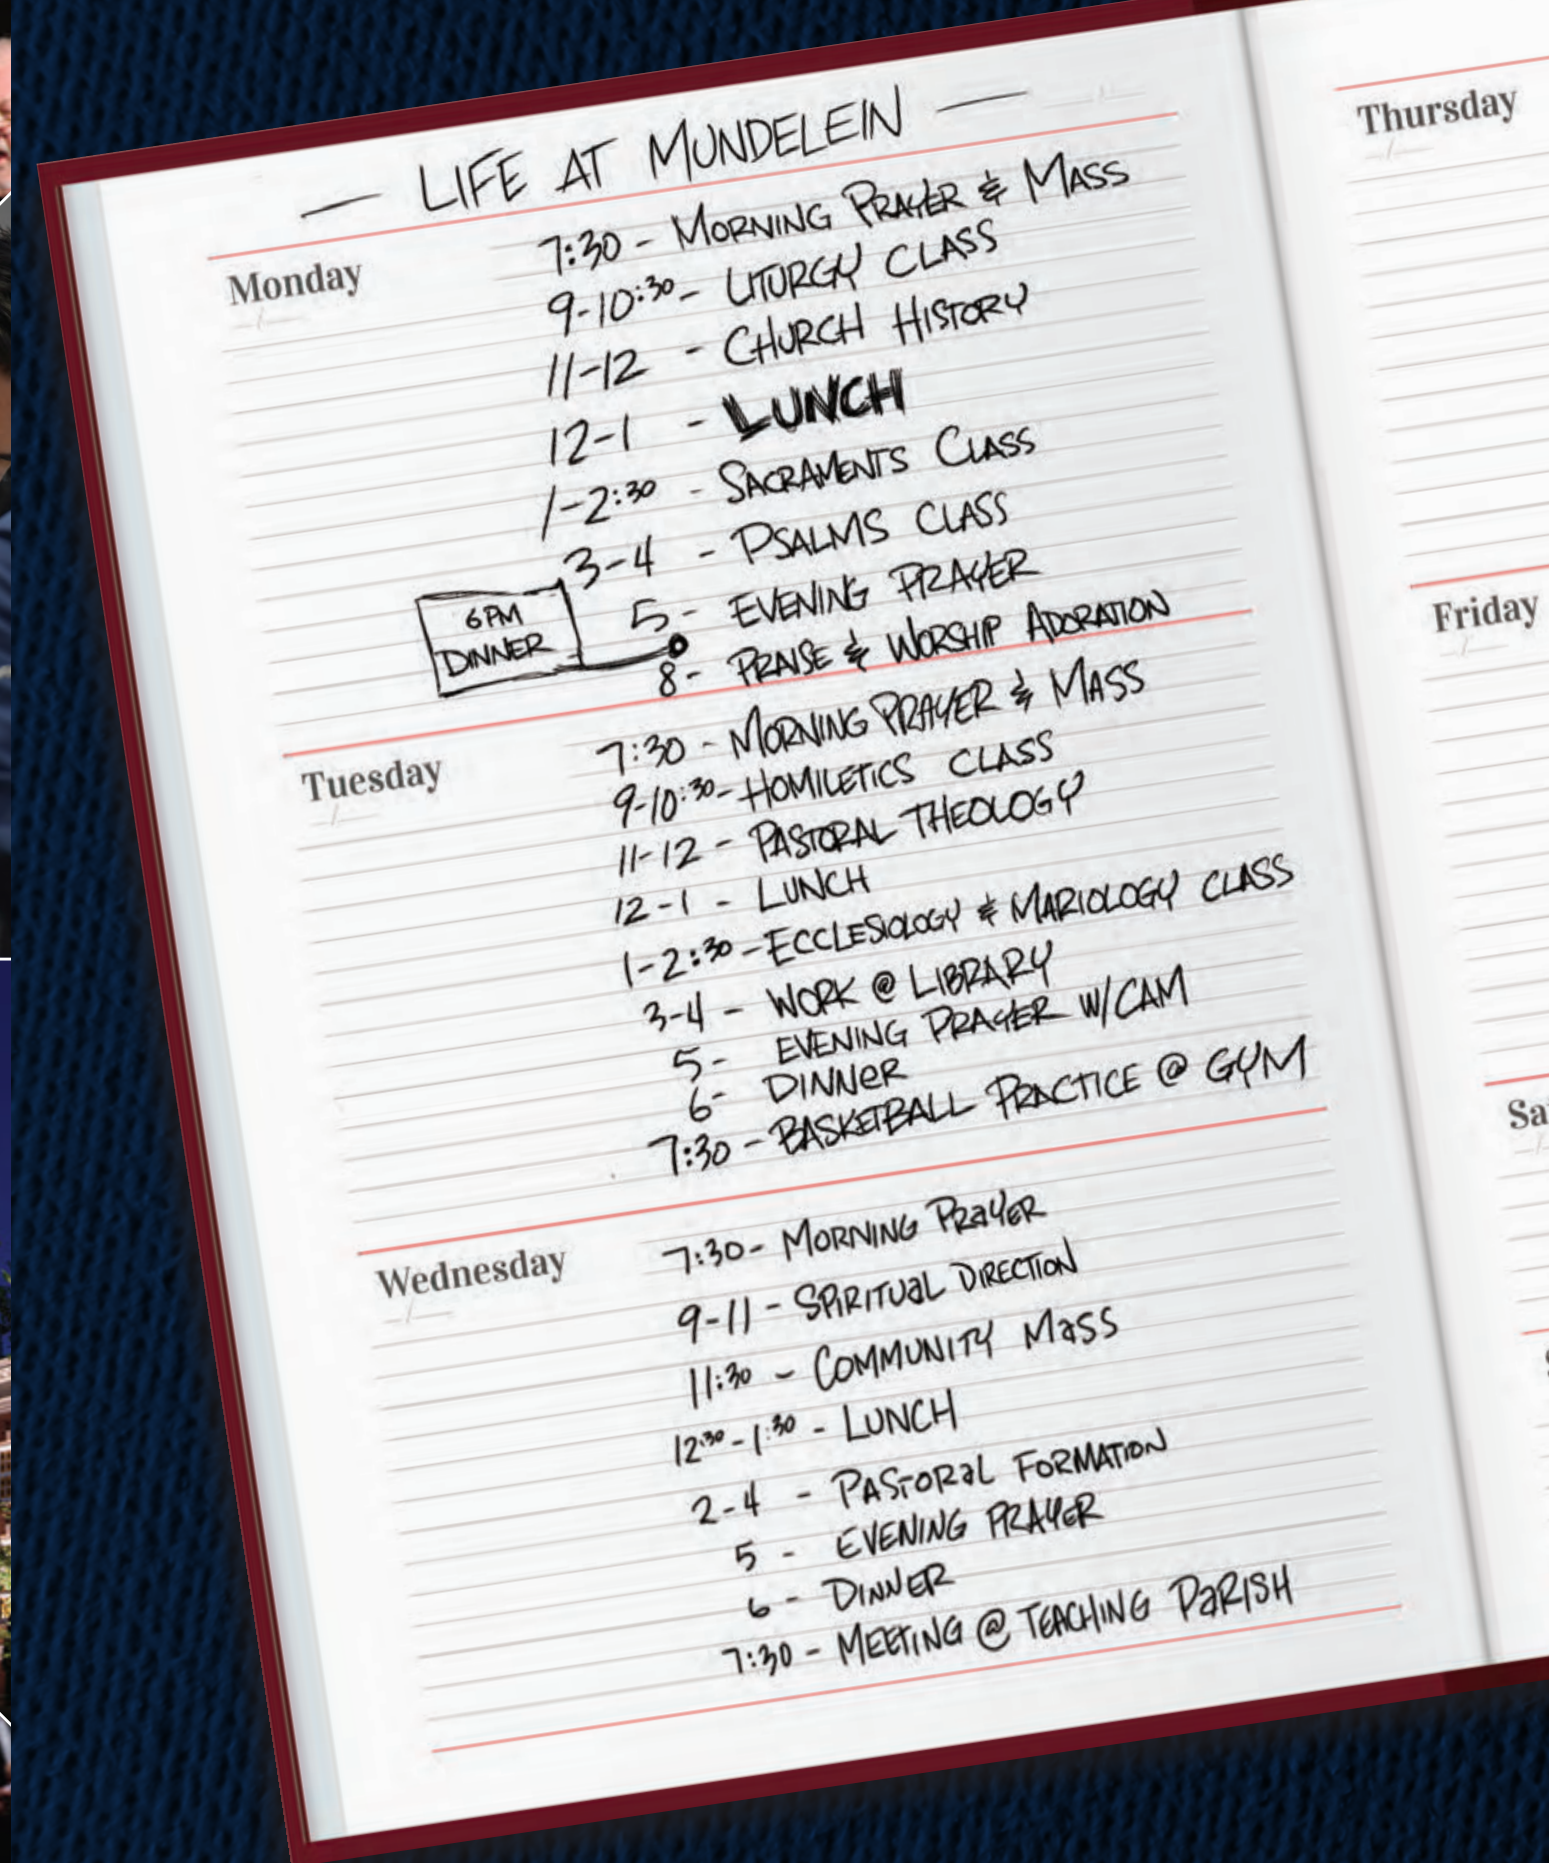 — LIFE AT MUNDELEIN —
Monday
7:30 - MORNING PRAYER & MASS
9-10:30 - LITURGY CLASS
11-12 - CHURCH HISTORY
12-1 - LUNCH
1-2:30 - SACRAMENTS CLASS
3-4 - PSALMS CLASS
5 - EVENING PRAYER
6PM
DINNER
8 - PRAISE & WORSHIP ADORATION
Tuesday
7:30 - MORNING PRAYER & MASS
9-10:30 - HOMILETICS CLASS
11-12 - PASTORAL THEOLOGY
12-1 - LUNCH
1-2:30 - ECCLESIOLOGY & MARIOLOGY CLASS
3-4 - WORK @ LIBRARY
5 - EVENING PRAYER W/CAM
6 - DINNER
7:30 - BASKETBALL PRACTICE @ GYM
Wednesday
7:30 - MORNING PRAYER
9-11 - SPIRITUAL DIRECTION
11:30 - COMMUNITY MASS
12:30-1:30 - LUNCH
2-4 - PASTORAL FORMATION
5 - EVENING PRAYER
6 - DINNER
7:30 - MEETING @ TEACHING PARISH
Thursday
Friday